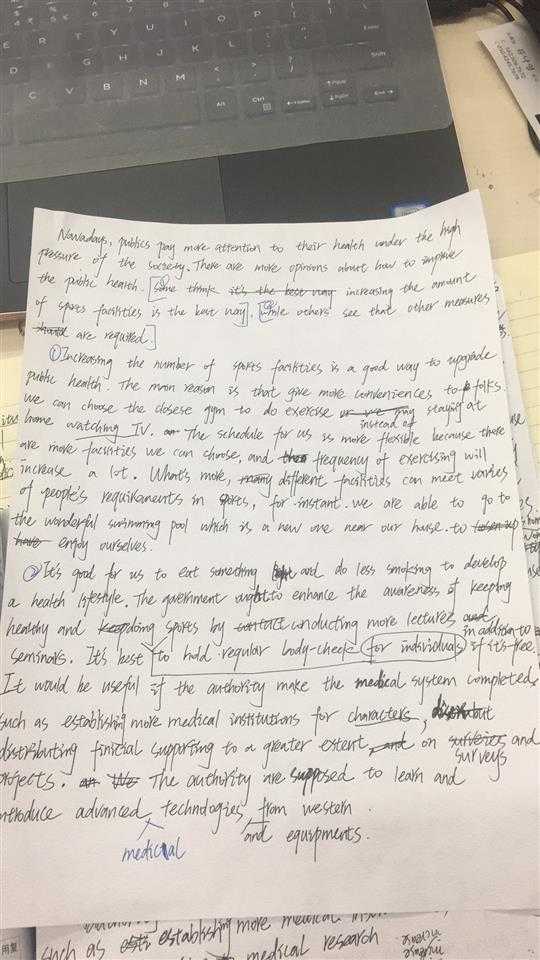 Nowadays, publics pay more attention to their health under the high
pressure of the society. There are more opinions about how to improve
the public health. [Some think it's the best way increasing the amount
of sports facilities is the best way]. [While others' see that other measures
are required.]
①Increasing the number of sports facilities is a good way to upgrade
public health. The main reason is that give more conveniences to folks.
we can choose the closese gym to do exercise or we may instead of staying at
home watching TV. The schedule for us is more flexible because there
are more facilities we can choose, and frequency of exercising will
increase a lot. What's more, many different facilities can meet varies
of people's requirements in sports, for instant. we are able to go to
the wonderful swimming pool which is a new one near our house. to
have enjoy ourselves.
②It's good for us to eat something and do less smoking to develop
a health lifestyle. The government ought to enhance the awareness of keeping
healthy and keep doing sports by contact conducting more lectures and in addition to
seminars. It's best to hold regular body-check for individuals if it's free.
It would be useful if the authority make the medical system completed,
such as establishing more medical institutions for characters, but
distributing finicial supporting to a greater extent, and on surveries surveys and
projects. We The authority are supposed to learn and
introduce advanced medical technologies from western
and equipments.
such as esti establishing more medical
medical research